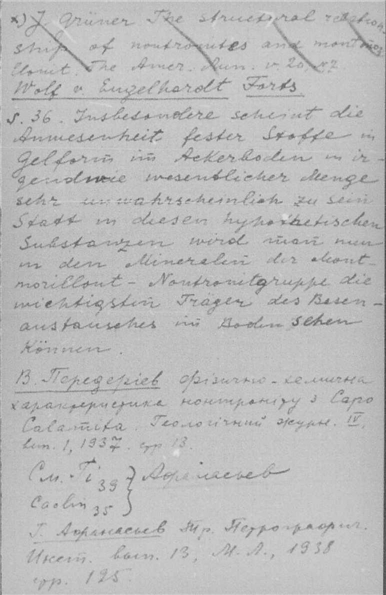 x) J. Grüner The structural relation
ship of nontronites and montmo
The Amer. Min. v. 20,
Wolf v. Engelhardt Forts
S. 36. Insbesondere scheint die
Anwesenheit fester Stoffe in
Gelform im Ackerboden in ir-
gendwie wesentlicher Menge
sehr unwahrscheinlich zu sein
Statt in diesen hypothetischen
Substanzen wird man nun
in den Mineralen der Mont-
morillonit - Nontronitgruppe die
wichtigsten Träger des Basen-
austausches im Boden sehen
können.
В. Передеріев фізично-хемична
характеристика нонтроніту з Capo
Calamita. Геологічний журн. IV,
вип. 1, 1937. стр. 13.
См. Ti 39 } Афанасьев
Caolin 35 }
Г. Афанасьев Тр. Петрографич.
Инст. вып. 13, М. Л., 1938
стр. 125.